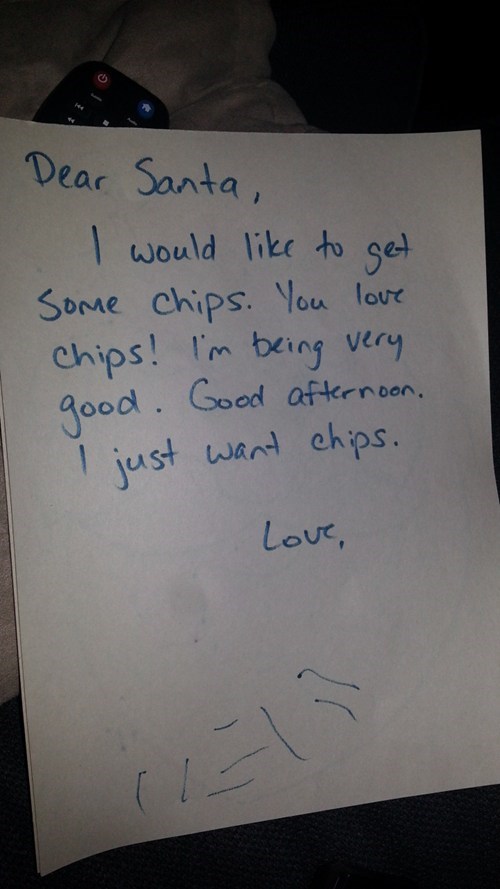 Dear Santa,
I would like to get
some chips. You love
chips! I'm being very
good. Good afternoon.
I just want chips.
Love,